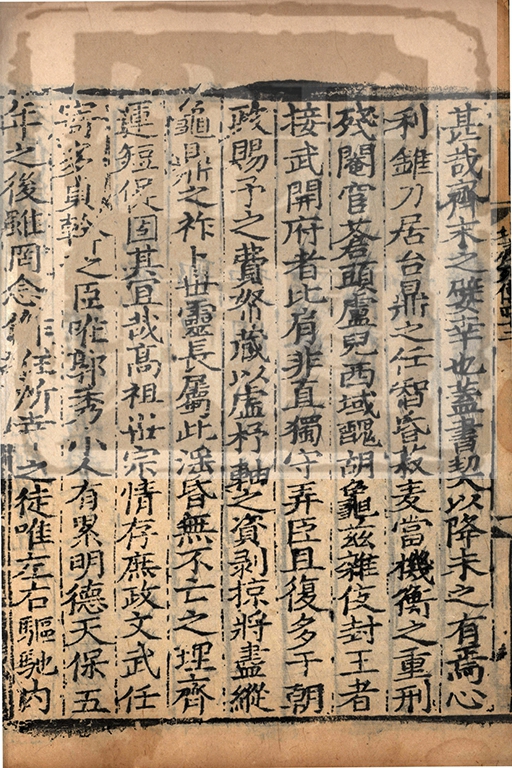 甚哉齊末之嬖幸也蓋書契以降未之有焉心
利錐刀居台鼎之任智昏菽麦當機衡之重刑
殘閹宦蒼頭盧兒西域醜胡龜兹雜伎封王者
接武開府者比肩非直獨守弄臣且復多干朝
政賜予之費帑藏以虛杼軸之資剥掠將盡縱
龜鼎之祚卜世靈長屬此淫昏無不亡之理齊
運短促固其宜哉高祖世宗情存庶政文武任
寄多貞幹之臣唯郭秀小人有累明德天保五
年之後雖罔念作狂所幸之徒唯左右驅馳内